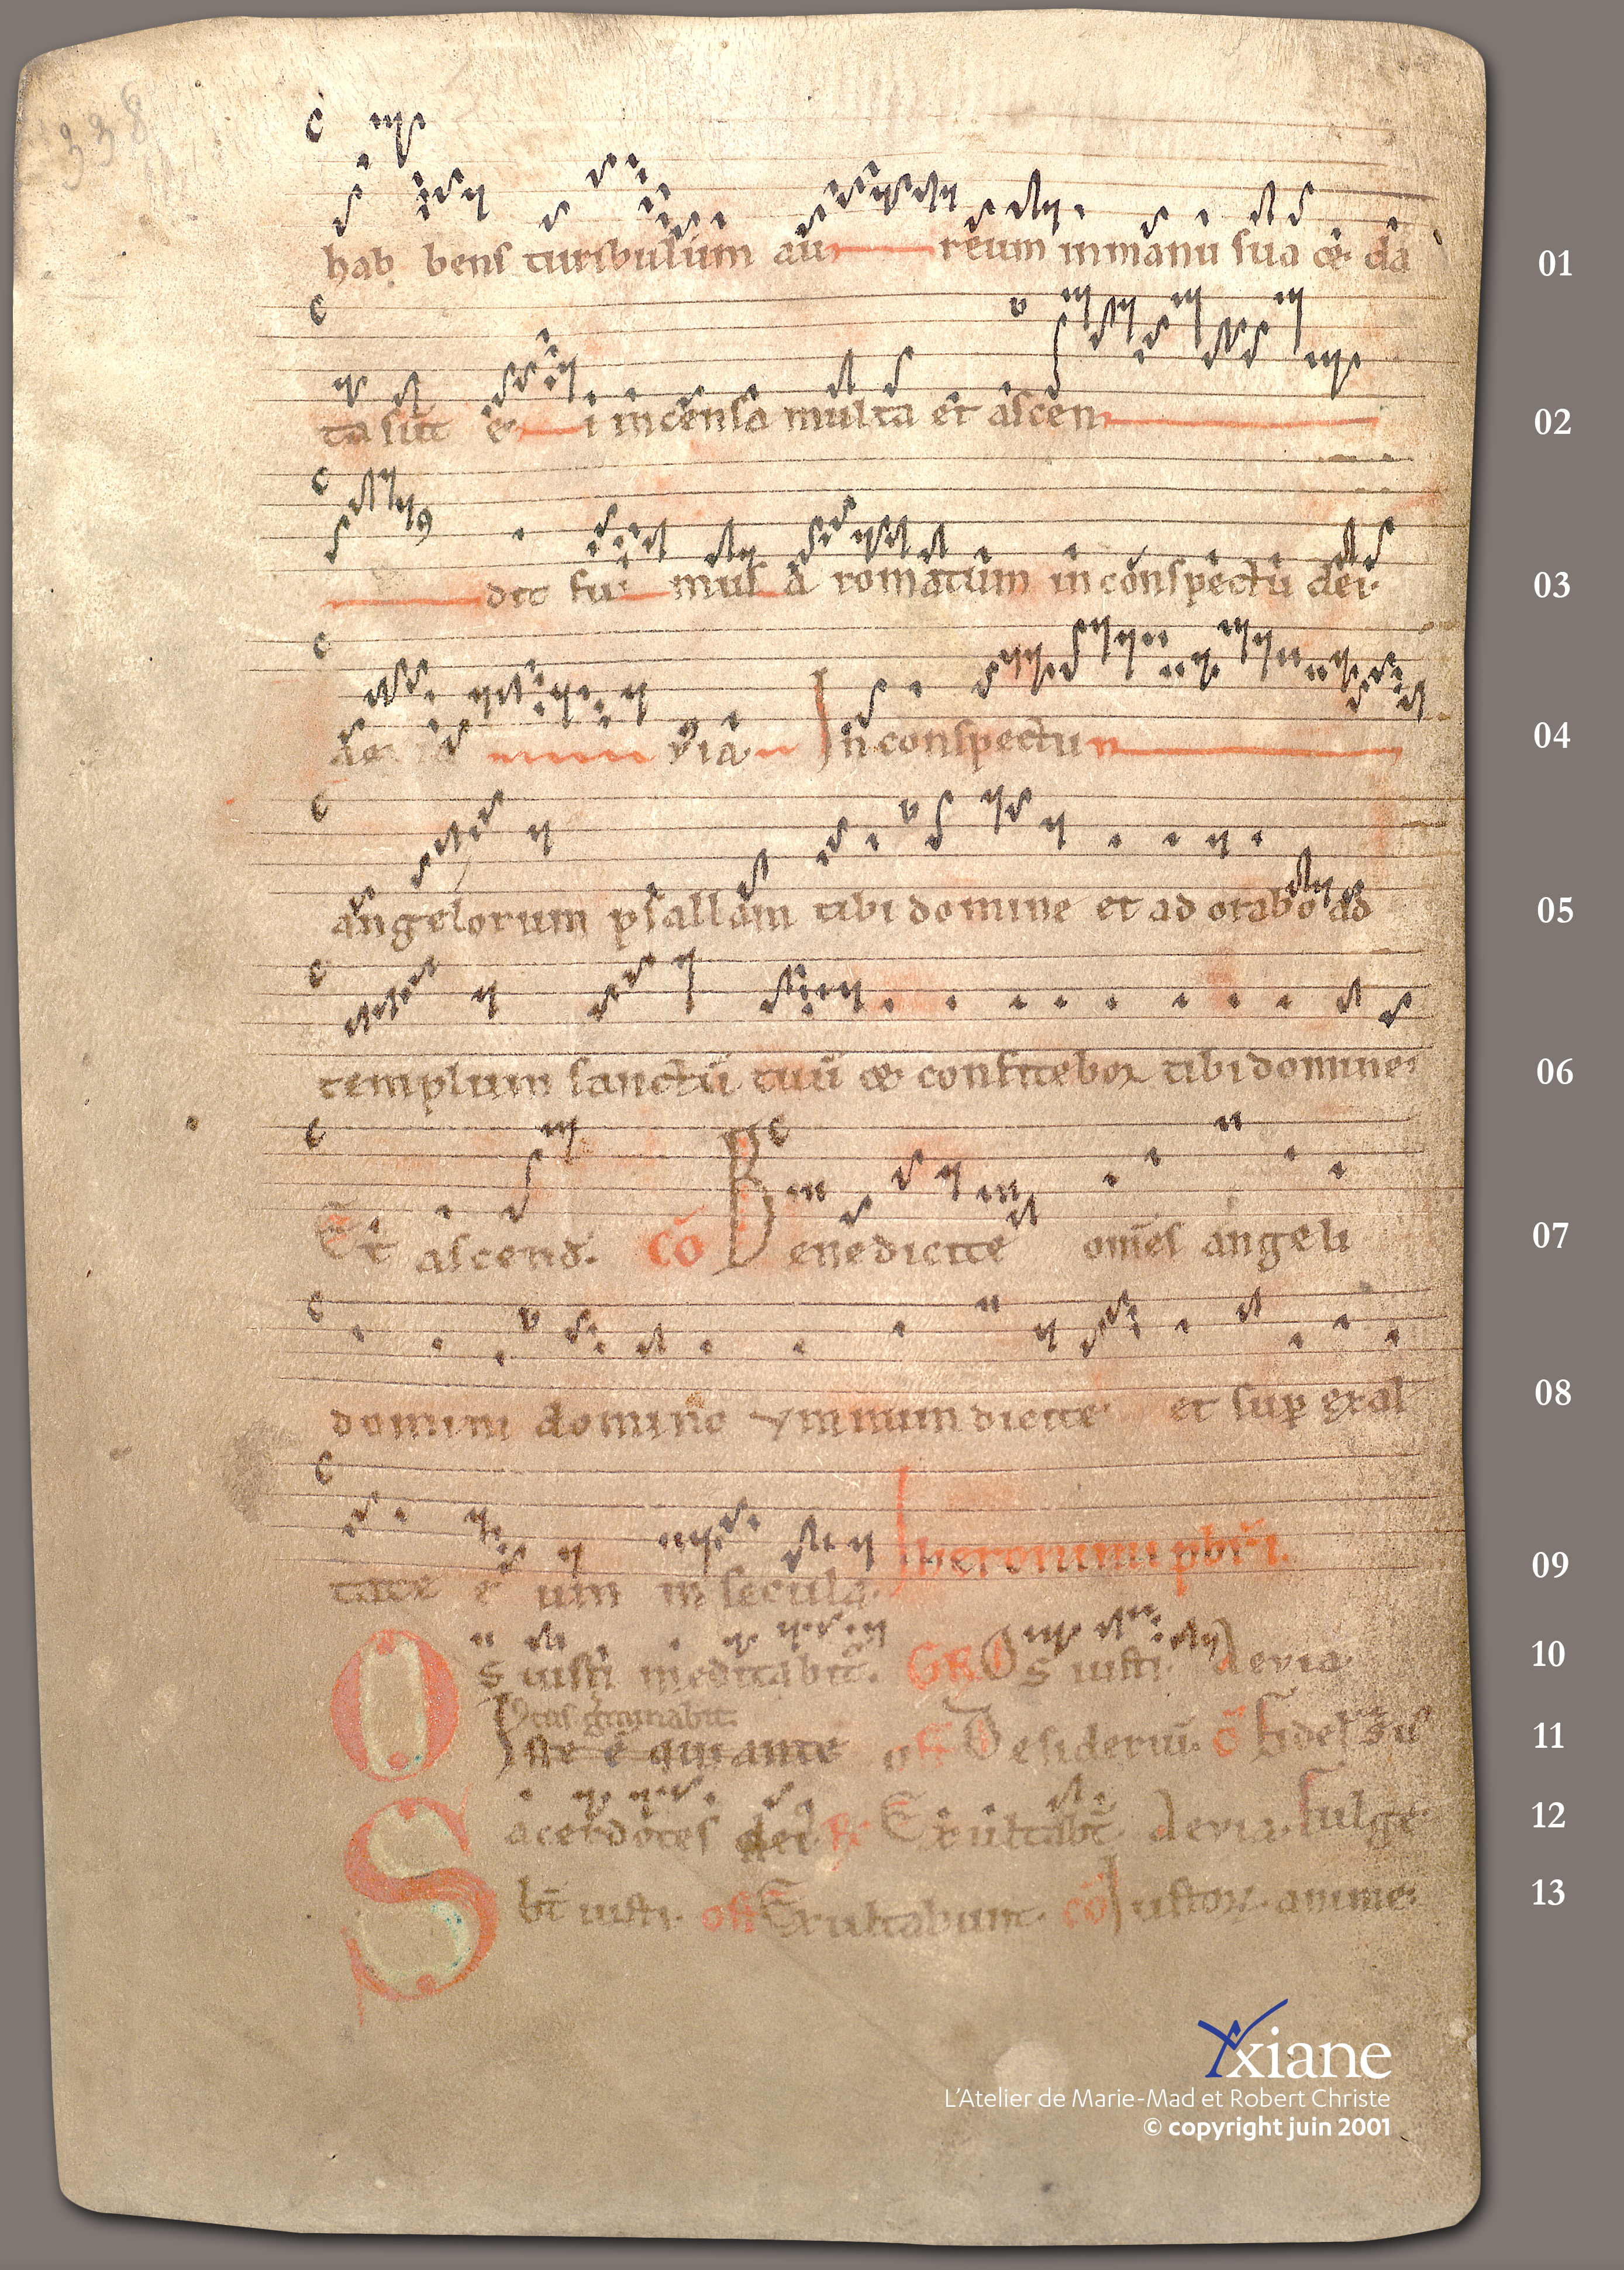 338
hab bens turibulum au reum in manu sua & da 01
ta sūt e i incensa multa et ascen 02
dit fu mus a romatum in conspectu dei· 03
ae ia evia In conspectu 04
angelorum psallam tibi domine et ad orabo ad 05
templum sanctū tuū & confitebor tibi domine· 06
Et ascend. cō Benedicite om̄es angeli 07
domini domino ymnum dicite· et sup exal 08
tate e um in secula· Iheronimi pb̄ri. 09
Os iusti meditabit̄. GR Os iusti. aevia 10
Iustus germinabit.
Iste ē qui ante off Desideriū. cō Fidelis 11
Sacerdotes dei· Exultab̄t. aevia. Fulge 12
b̄t iusti. off Exultabunt. cō Iustor. anime· 13
Yxiane
L'Atelier de Marie-Mad et Robert Christe
© copyright juin 2001